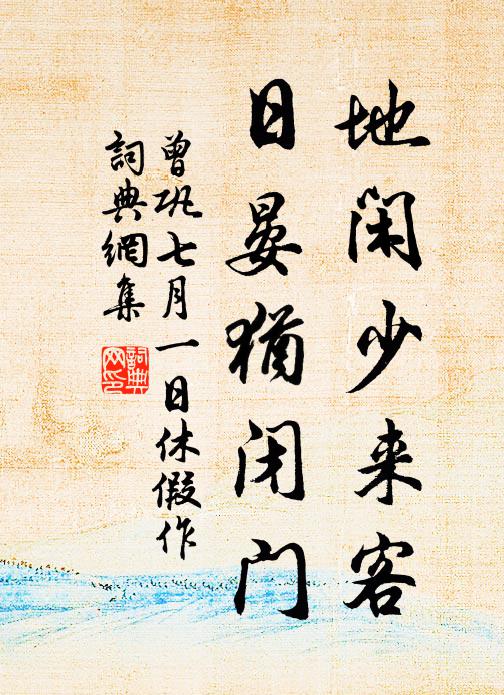 地闲少来客
日晏犹闭门
曾巩七月一日休假作
詞典網集
詞典
网印